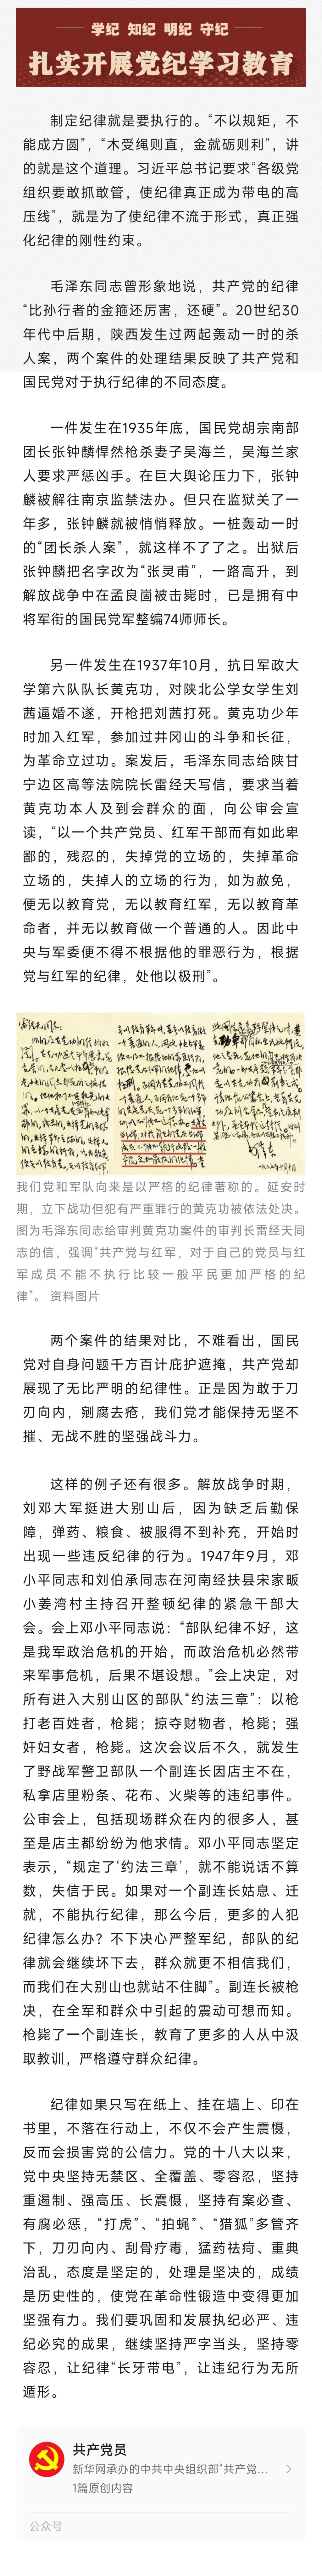 学纪 知纪 明纪 守纪
扎实开展党纪学习教育
制定纪律就是要执行的。“不以规矩，不
能成方圆”，“木受绳则直，金就砺则利”，讲
的就是这个道理。习近平总书记要求“各级党
组织要敢抓敢管，使纪律真正成为带电的高
压线”，就是为了使纪律不流于形式，真正强
化纪律的刚性约束。
毛泽东同志曾形象地说，共产党的纪律
“比孙行者的金箍还厉害，还硬”。20世纪30
年代中后期，陕西发生过两起轰动一时的杀
人案，两个案件的处理结果反映了共产党和
国民党对于执行纪律的不同态度。
一件发生在1935年底，国民党胡宗南部
团长张钟麟悍然枪杀妻子吴海兰，吴海兰家
人要求严惩凶手。在巨大舆论压力下，张钟
麟被解往南京监禁法办。但只在监狱关了一
年多，张钟麟就被悄悄释放。一桩轰动一时
的“团长杀人案”，就这样不了了之。出狱后
张钟麟把名字改为“张灵甫”，一路高升，到
解放战争中在孟良崮被击毙时，已是拥有中
将军衔的国民党军整编74师师长。
另一件发生在1937年10月，抗日军政大
学第六队队长黄克功，对陕北公学女学生刘
茜逼婚不遂，开枪把刘茜打死。黄克功少年
时加入红军，参加过井冈山的斗争和长征，
为革命立过功。案发后，毛泽东同志给陕甘
宁边区高等法院院长雷经天写信，要求当着
黄克功本人及到会群众的面，向公审会宣
读，“以一个共产党员、红军干部而有如此卑
鄙的，残忍的，失掉党的立场的，失掉革命
立场的，失掉人的立场的行为，如为赦免，
便无以教育党，无以教育红军，无以教育革
命者，并无以教育做一个普通的人。因此中
央与军委便不得不根据他的罪恶行为，根据
党与红军的纪律，处他以极刑”。
我们党和军队向来是以严格的纪律著称的。延安时
期，立下战功但犯有严重罪行的黄克功被依法处决。
图为毛泽东同志给审判黄克功案件的审判长雷经天同
志的信，强调“共产党与红军，对于自己的党员与红
军成员不能不执行比较一般平民更加严格的纪
律”。 资料图片
两个案件的结果对比，不难看出，国民
党对自身问题千方百计庇护遮掩，共产党却
展现了无比严明的纪律性。正是因为敢于刀
刃向内，剜腐去疮，我们党才能保持无坚不
摧、无战不胜的坚强战斗力。
这样的例子还有很多。解放战争时期，
刘邓大军挺进大别山后，因为缺乏后勤保
障，弹药、粮食、被服得不到补充，开始时
出现一些违反纪律的行为。1947年9月，邓
小平同志和刘伯承同志在河南经扶县宋家畈
小姜湾村主持召开整顿纪律的紧急干部大
会。会上邓小平同志说：“部队纪律不好，这
是我军政治危机的开始，而政治危机必然带
来军事危机，后果不堪设想。”会上决定，对
所有进入大别山区的部队“约法三章”：以枪
打老百姓者，枪毙；掠夺财物者，枪毙；强
奸妇女者，枪毙。这次会议后不久，就发生
了野战军警卫部队一个副连长因店主不在，
私拿店里粉条、花布、火柴等的违纪事件。
公审会上，包括现场群众在内的很多人，甚
至是店主都纷纷为他求情。邓小平同志坚定
表示，“规定了‘约法三章’，就不能说话不算
数，失信于民。如果对一个副连长姑息、迁
就，不能执行纪律，那么今后，更多的人犯
纪律怎么办？不下决心严整军纪，部队的纪
律就会继续坏下去，群众就更不相信我们，
而我们在大别山也就站不住脚”。副连长被枪
决，在全军和群众中引起的震动可想而知。
枪毙了一个副连长，教育了更多的人从中汲
取教训，严格遵守群众纪律。
纪律如果只写在纸上、挂在墙上、印在
书里，不落在行动上，不仅不会产生震慑，
反而会损害党的公信力。党的十八大以来，
党中央坚持无禁区、全覆盖、零容忍，坚持
重遏制、强高压、长震慑，坚持有案必查、
有腐必惩，“打虎”、“拍蝇”、“猎狐”多管齐
下，刀刃向内、刮骨疗毒，猛药祛疴、重典
治乱，态度是坚定的，处理是坚决的，成绩
是历史性的，使党在革命性锻造中变得更加
坚强有力。我们要巩固和发展执纪必严、违
纪必究的成果，继续坚持严字当头，坚持零
容忍，让纪律“长牙带电”，让违纪行为无所
遁形。
共产党员
新华网承办的中共中央组织部“共产党...
1篇原创内容
公众号